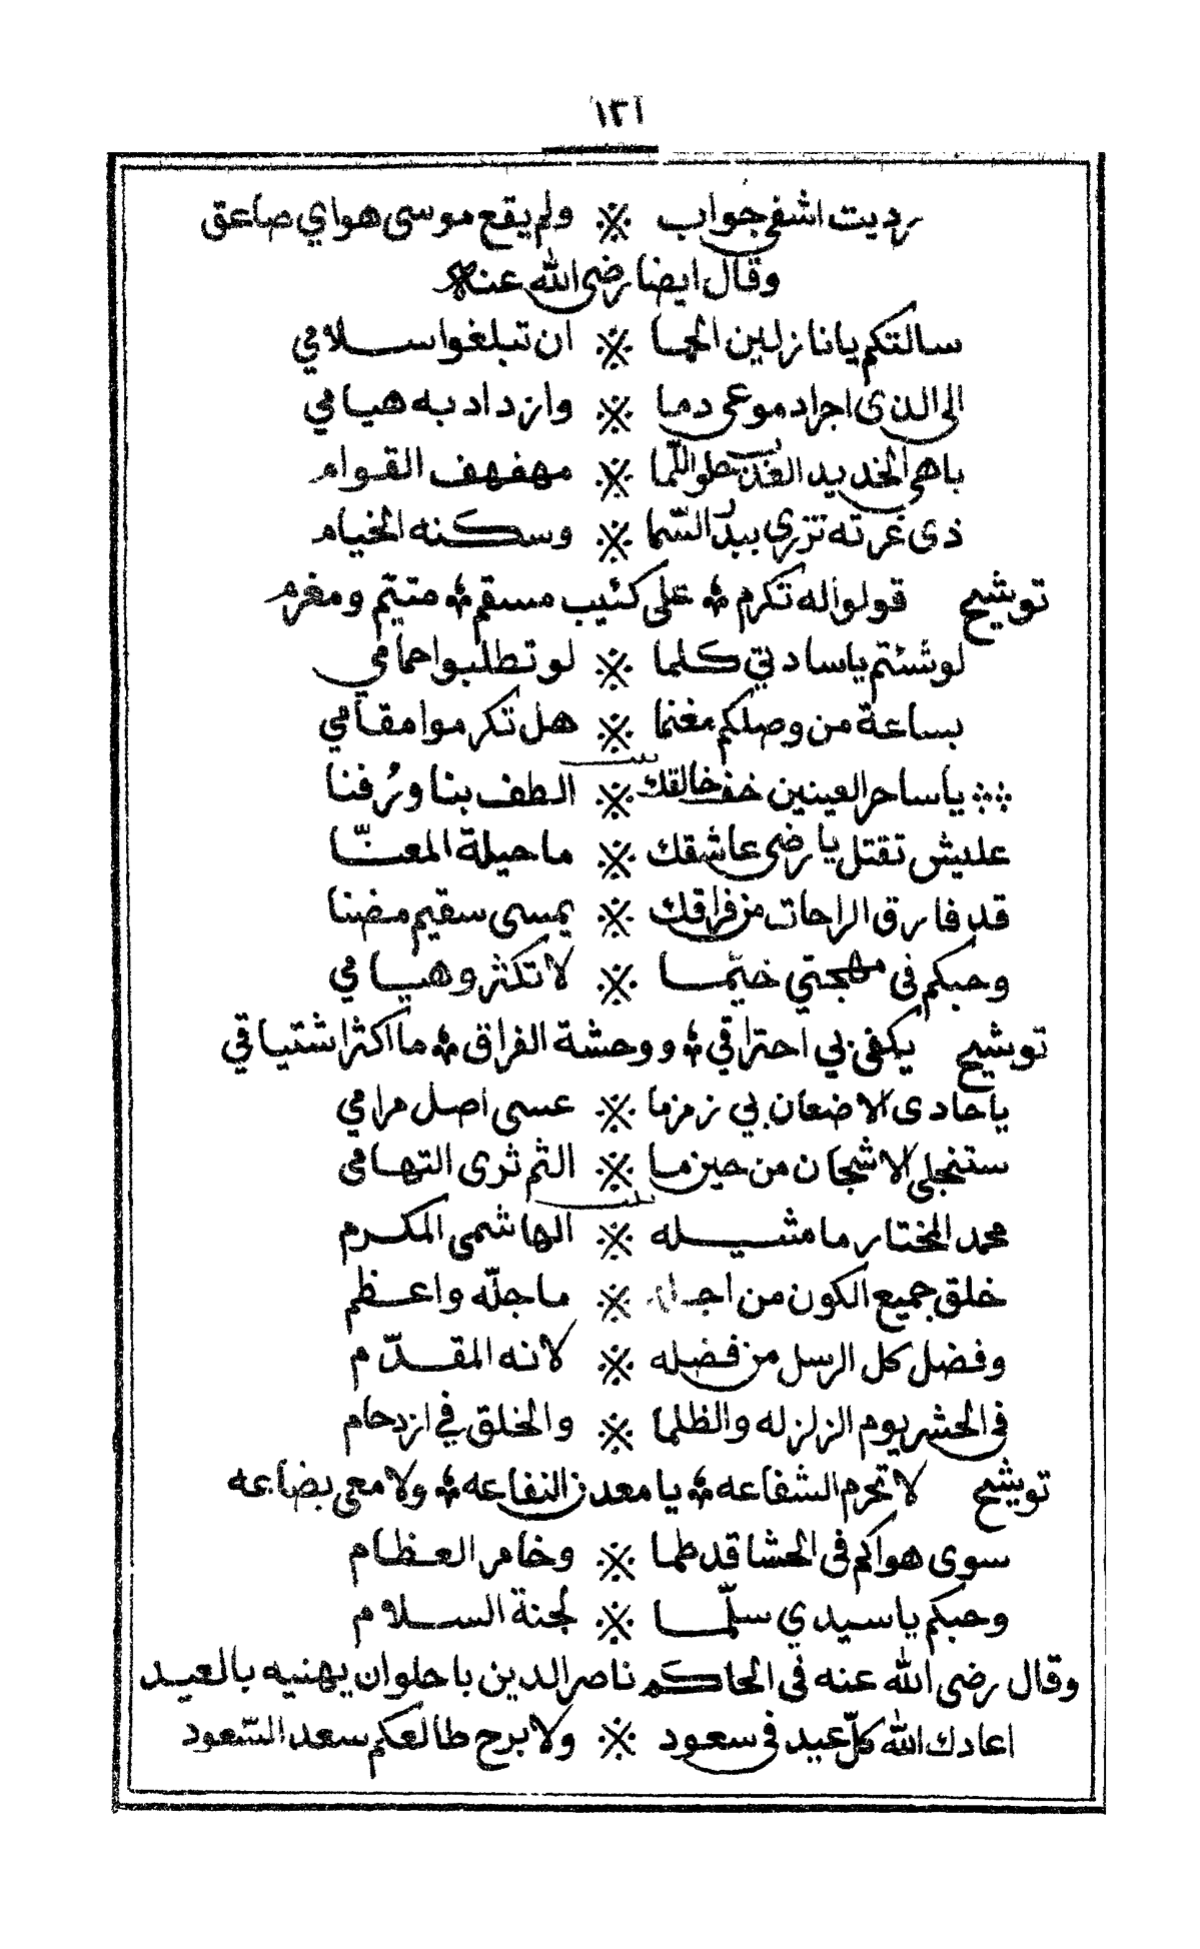 ١٣١
رديت اشفى جواب ※ ولم يقع موسى هواي صاعق
وقال ايضا رضى الله عنه
سالتكم يا نازلين الحما ※ ان تبلغوا سلامي
الى الذى اجراد موعى دما ※ وازداد به هيامي
باهى الخديد الغذب حلو اللّما ※ مهفهف القوام
ذى غرته تزري ببدر السّما ※ وسكنه الخيام
توشيح قولوا له تكرم ※ على كئيب مسقم ※ متيّم ومغرم
لو شئتم يا سادتي كلما ※ لو تطلبوا حمامي
بساعة من وصلكم مغنما ※ هل تكرموا مقامي
بيت
يا ساحر العينين خف خالقك ※ الطف بنا ورُفنا
عليش تقتل يا رضى عاشقك ※ ما حيلة المعنّا
قد فارق الراحات من فراقك ※ يمسى سقيم مضنا
وحبكم فى مهجتي خيّما ※ لا تكثروهيامي
توشيح يكفى بي احتراقي ※ ووحشة الفراق ※ ما اكثر اشتياقي
يا حادى الاضعان بي زمزما ※ عسى اصل مرامي
ستنجلى الاشجان من حين ما ※ الثم ثرى التهامى
بيت
محمد المختار ما مثيله ※ الهاشمى المكرم
خلق جميع الكون من اجله ※ ما جلّه واعظم
وفضل كل الرسل من فضله ※ لانه المقدّم
فى الحشر يوم الزلزله والظلما ※ والخلق في ازدحام
توشيح لا تحرم الشفاعه ※ يا معدن النفاعه ※ ولا معى بضاعه
سوى هواكم فى الحشا قد طما ※ وخامر العظام
وحبكم يا سيدي سلّما ※ لجنة السلام
وقال رضى الله عنه فى الحاكم ناصر الدين باحلوان يهنيه بالعيد
اعادك الله كلّ عيد فى سعود ※ ولا برح طالعكم سعد السّعود